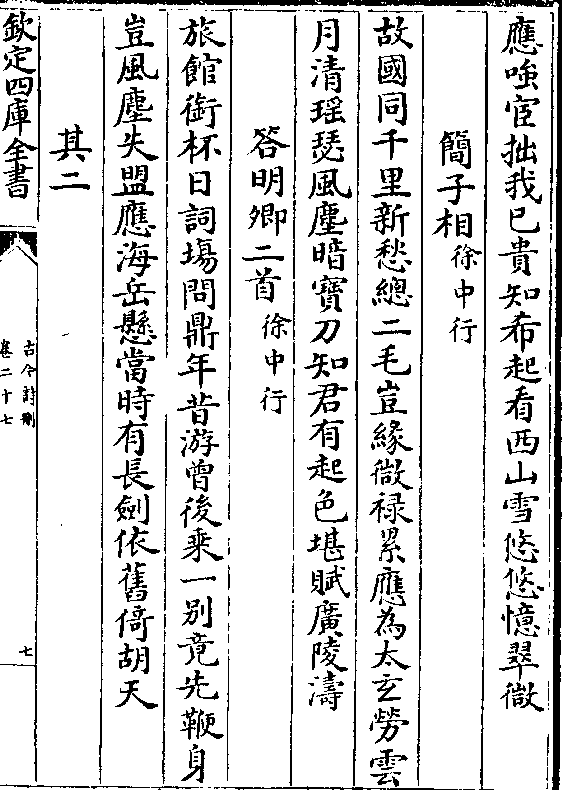 應嗤宦拙我已貴知希起看西山雪悠悠憶翠微
簡子相徐中行
故國同千里新愁總二毛豈緣微祿累應為太玄勞雲
月清瑶瑟風塵暗寶刀知君有起色堪賦廣陵濤
答明卿二首徐中行
旅館銜杯日詞場問鼎年昔游曾後乘一别竟先鞭身
豈風塵失盟應海岳懸當時有長劍依舊倚胡天
其二
欽定四庫全書
古今詩刪
卷二十七
七